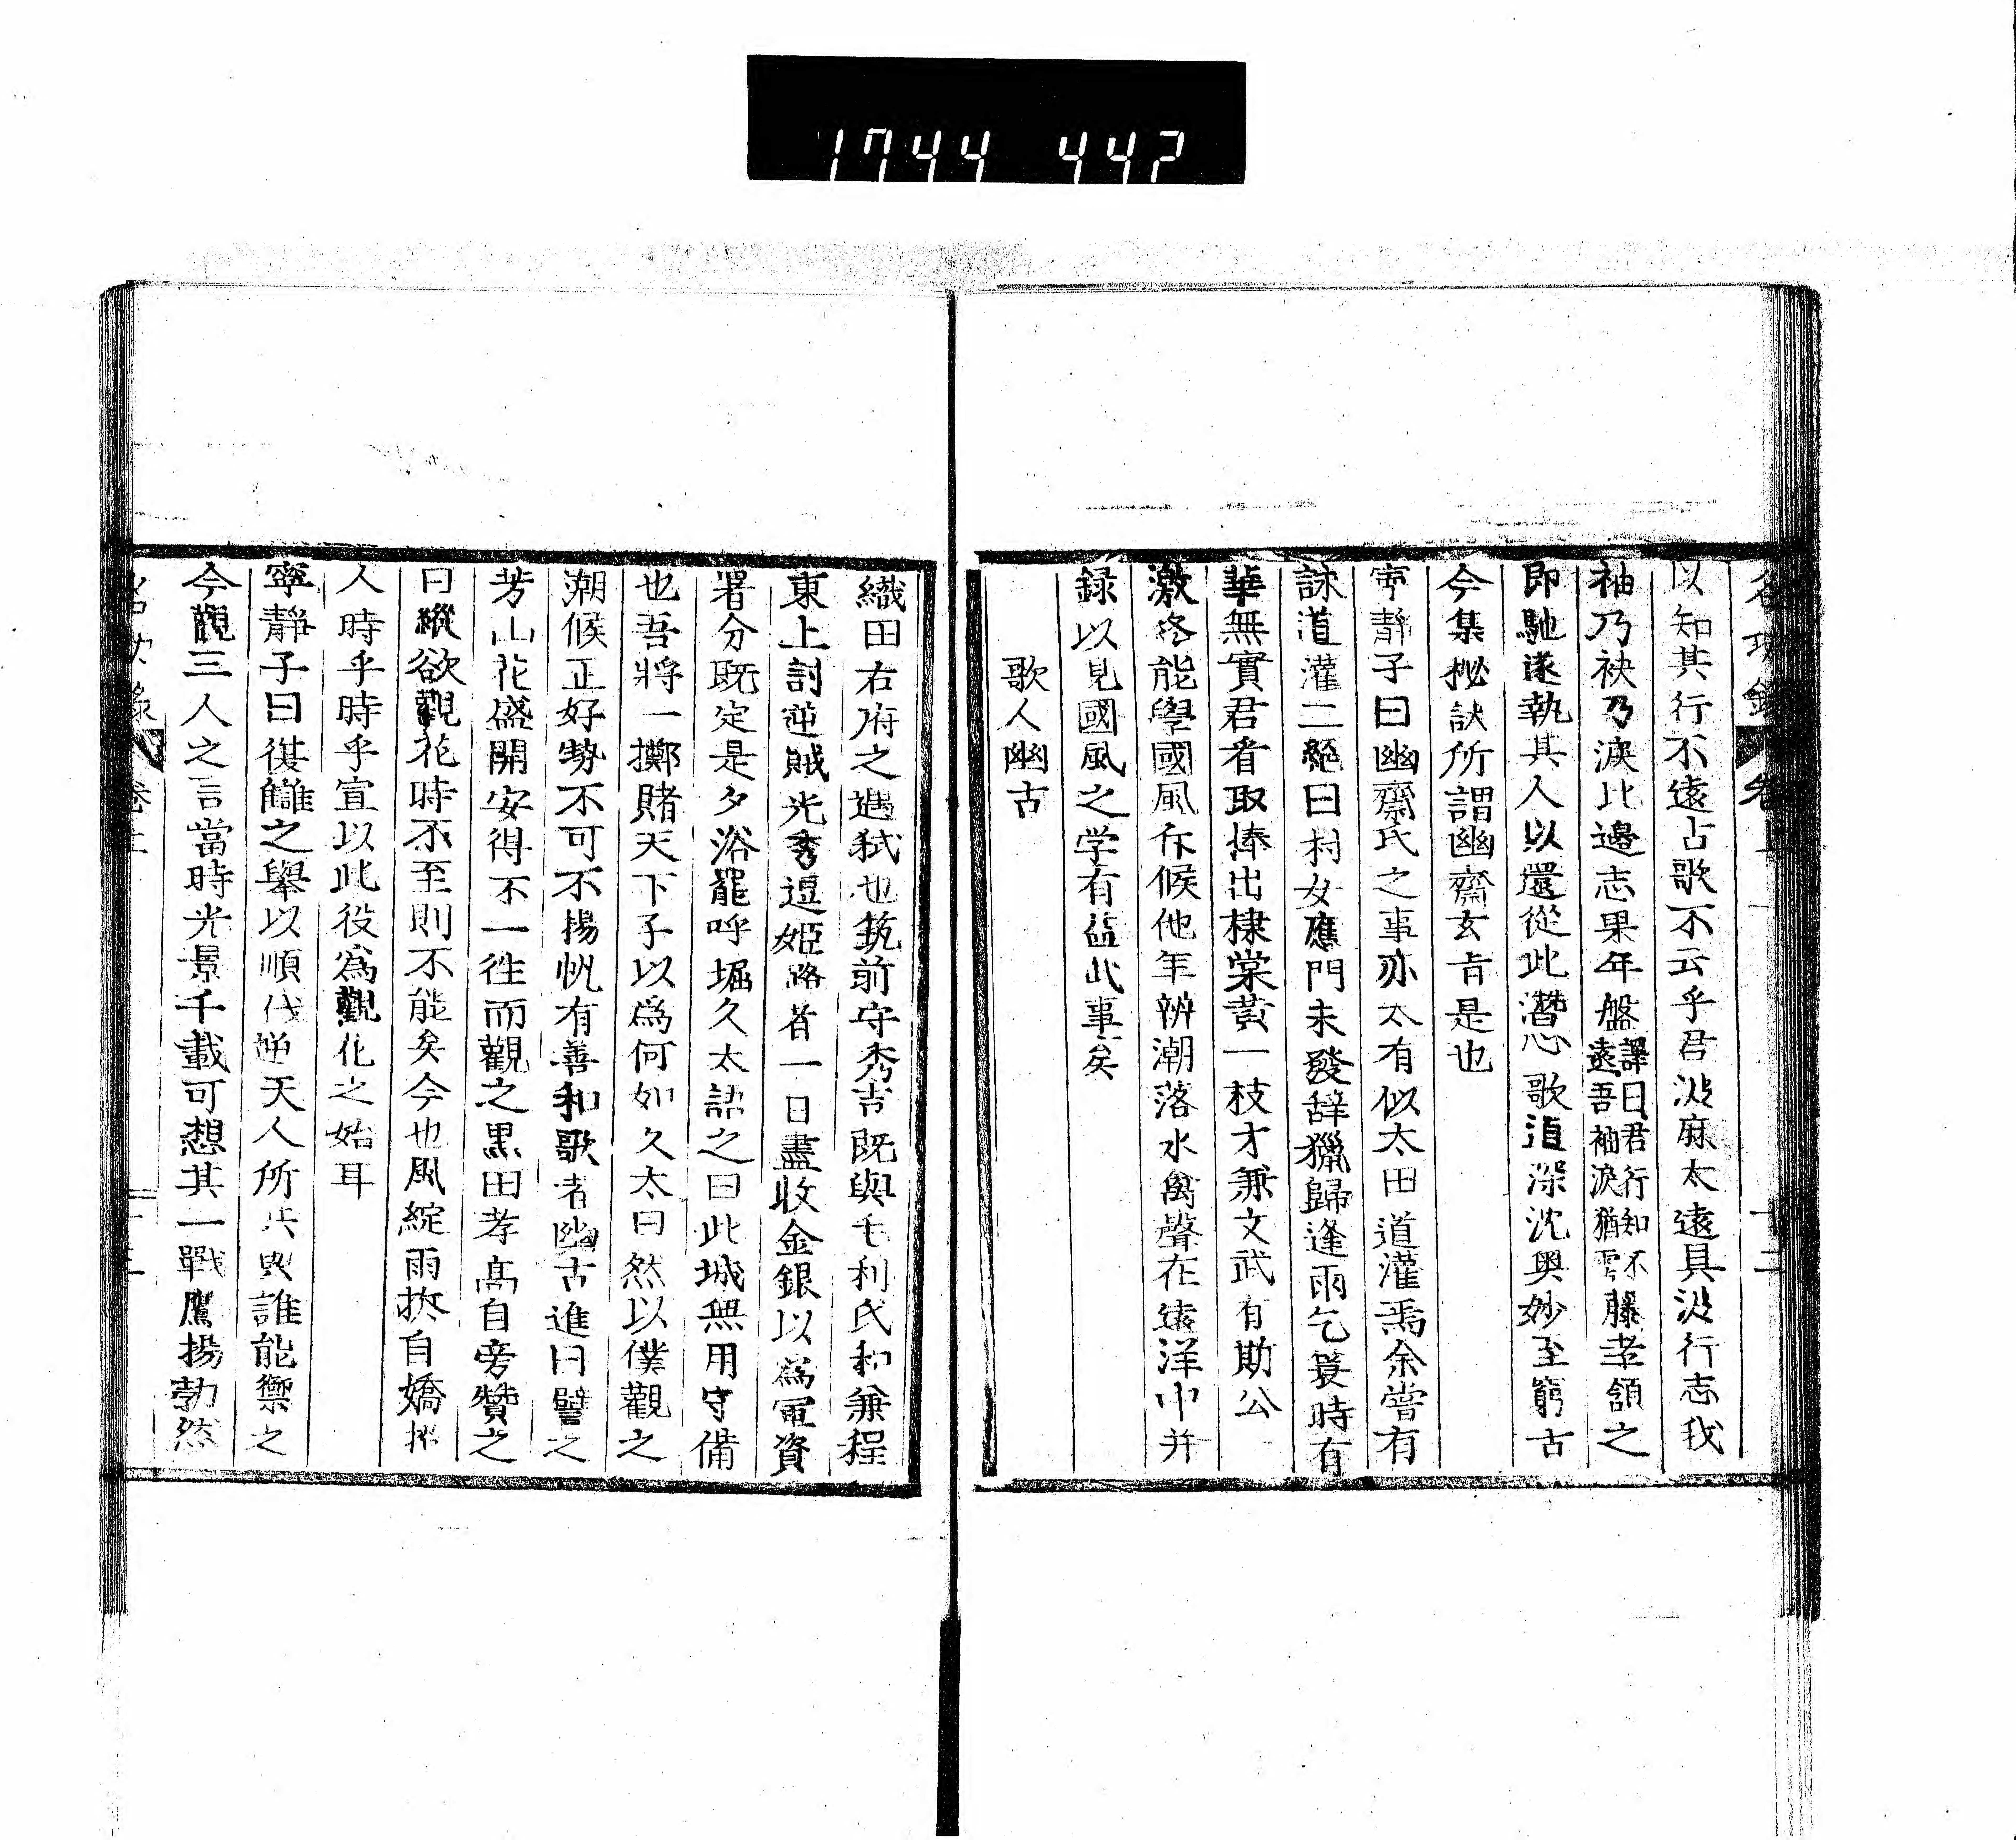 1744 442
以知其行不遠古歌不云乎君波麻太遠具波行志我
袖乃袂乃淚比邉志果年盤譯曰君行知不遠吾袖淚猶雫藤孝頷之
即馳遂執其人以還從此潛心歌道深沈奥妙至窮古
今集秘訣所謂幽齋玄旨是也
寧靜子曰幽齋氏之事亦太有似太田道灌焉余嘗有
詠道灌二絕曰村女應門未發辞獵歸逢雨乞蓑時有
華無實君看取捧出棣棠黃一枝才兼文武有斯公
激終能學國風斥候他年辨潮落水禽聲在遠洋中并
録以見國風之学有益此事矣
歌人幽古
織田右府之遇弒也筑前守秀吉既與毛利氏和兼程
東上討逆賊光秀逗姬路者一日盡收金銀以為軍資
署分既定是夕浴罷呼堀久太語之曰此城無用守備
也吾將一擲賭天下子以為何如久太曰然以僕觀之
潮候正好勢不可不揚帆有善和歌者幽古進曰譬之
芳山花盛開安得不一往而觀之黒田孝高自旁贊之
曰縱欲觀花時不至則不能矣今也風綻雨拆自嬌招
人時乎時乎宣以此役為觀花之始耳
寧靜子曰復讎之舉以順伐逆天人所共與誰能禦之
今觀三人之言當時光景千載可想其一戰鷹揚勃然